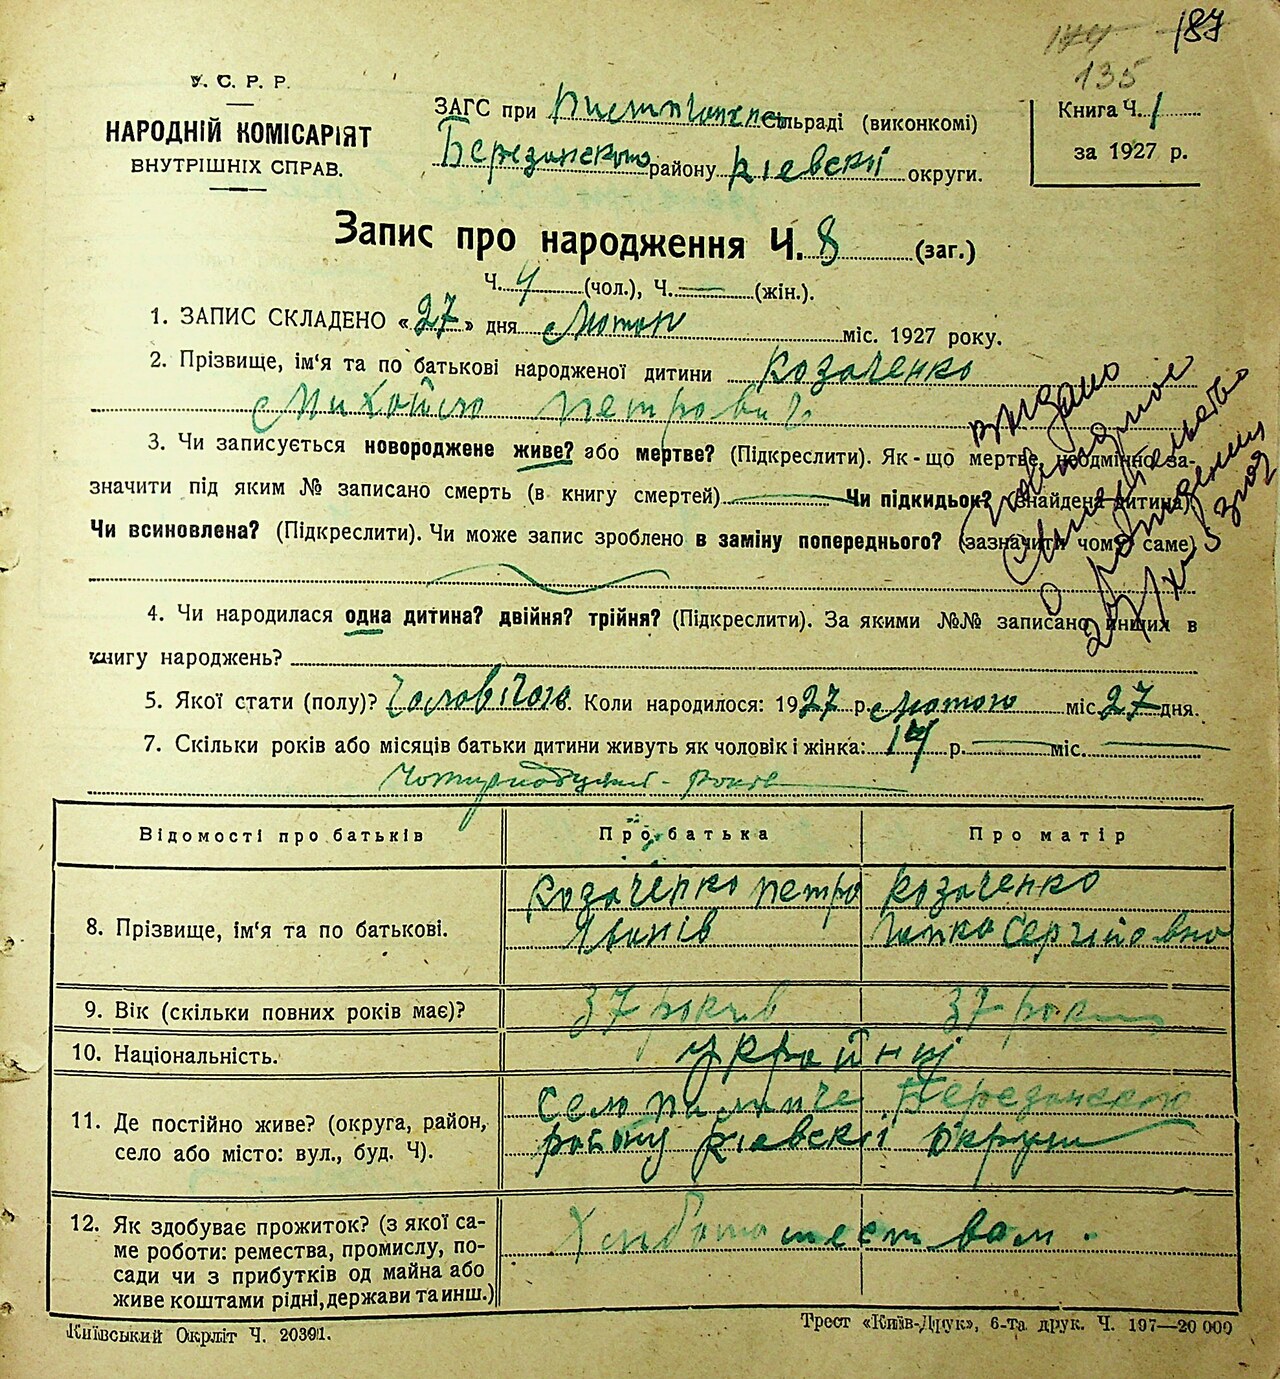 187
135
У. С. Р. Р.
НАРОДНІЙ КОМІСАРІЯТ
ВНУТРІШНІХ СПРАВ.
ЗАГС при сільраді (виконкомі)
Березанського району Київскій округи.
Книга Ч. 1
за 1927 р.
Запис про народження Ч. 8 (заг.)
Ч. 4 (чол.), Ч. — (жін.).
1. ЗАПИС СКЛАДЕНО «27» дня Лютого міс. 1927 року.
2. Прізвище, ім‘я та по батькові народженої дитини Козаченко
Михайло Петрович
3. Чи записується новороджене живе? або мертве? (Підкреслити). Як-що мертве, неодмінно за-
значити під яким № записано смерть (в книгу смертей) Чи підкидьок? (Знайдена дитина)
Чи всиновлена? (Підкреслити). Чи може запис зроблено в заміну попереднього? (зазначити чому саме)
4. Чи народилася одна дитина? двійня? трійня? (Підкреслити). За якими №№ записано инших в
книгу народжень?
5. Якої стати (полу)? Чоловічого. Коли народилося: 1927 р. лютого міс. 27 дня.
7. Скільки років або місяців батьки дитини живуть як чоловік і жінка: 14 р. — міс. —
Чотирнадцять років
выдано
повторное
Свидетельство
о рождении
Відомості про батьків
Про батька
Про матір
8. Прізвище, ім‘я та по батькові.
Козаченко Петро
Іванів
Козаченко
Сергіївна
9. Вік (скільки повних років має)?
37 років
37 років
10. Національність.
Українці
11. Де постійно живе? (округа, район,
село або місто: вул., буд. Ч).
Село Березанского
району Київскій округи
12. Як здобуває прожиток? (з якої са-
ме роботи: ремества, промислу, по-
сади чи з прибутків од майна або
живе коштами рідні, держави та инш.)
Хліборобством.
Київський Окрліт Ч. 20391.
Трест «Київ-Друк», 6-та друк. Ч. 197—20 000